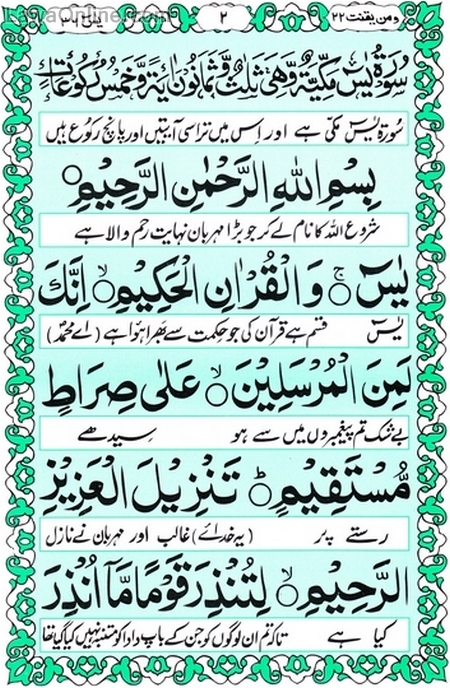 ومن یقنت ۲۲ ۲ یٰسٓ ۳۶
سُوْرَةُ يٰسٓ مَكِّيَّةٌ وَّهِيَ ثَلٰثٌ وَّثَمَانُوْنَ اٰيَةً وَّخَمْسُ رُكُوْعَاتٍ
سُورۃ یٰسٓ مکی ہے اور اِس میں تراسی آیتیں اور پانچ رکوع ہیں
بِسْمِ اللهِ الرَّحْمٰنِ الرَّحِيْمِ ○
شروع اللہ کا نام لے کر جو بڑا مہربان نہایت رحم والا ہے
يٰسٓ ○ۚ وَالْقُرْاٰنِ الْحَكِيْمِ ○ۙ اِنَّكَ
یٰسٓ قسم ہے قرآن کی جو حکمت سے بھرا ہوا ہے (اے محمدؐ)
لَمِنَ الْمُرْسَلِيْنَ ○ۙ عَلٰى صِرَاطٍ
بے شک تم پیغمبروں میں سے ہو سیدھے
مُّسْتَقِيْمٍ ○ؕ تَنْزِيْلَ الْعَزِيْزِ
رستے پر (یہ خدائے) غالب اور مہربان نے نازل
الرَّحِيْمِ ○ۙ لِتُنْذِرَ قَوْمًا مَّاۤ اُنْذِرَ
کیا ہے تاکہ تم ان لوگوں کو جن کے باپ دادا کو متنبہ نہیں کیا گیا تھا